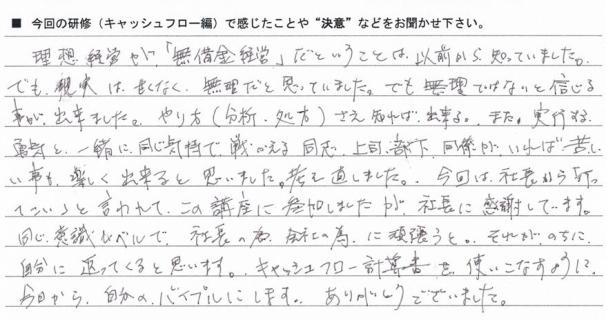 ■ 今回の研修（キャッシュフロー編）で感じたことや“決意”などをお聞かせ下さい。
理想経営が、「無借金経営」だということは、以前から知っていました。
でも、現実は甘くなく、無理だと思っていました。でも無理ではないと信じる
事が、出来ました。やり方（分析、処方）さえ知れば、出来る。また、実行する
勇気と、一緒に、同じ気持で、戦かえる同志、上司、部下、同僚がいれば苦し
い事も、楽しく出来ると思いました。考え直しました。今回は、社長から行っ
てこいと言われて、この講座に参加しましたが、社長に感謝しています。
同じ意識レベルで、社長の為、会社の為、に頑張うと。それが、のちに、
自分に返ってくると思います。キャッシュフロー計算書を使いこなすように、
今日から、自分の、バイブルにします。ありがとうございました。